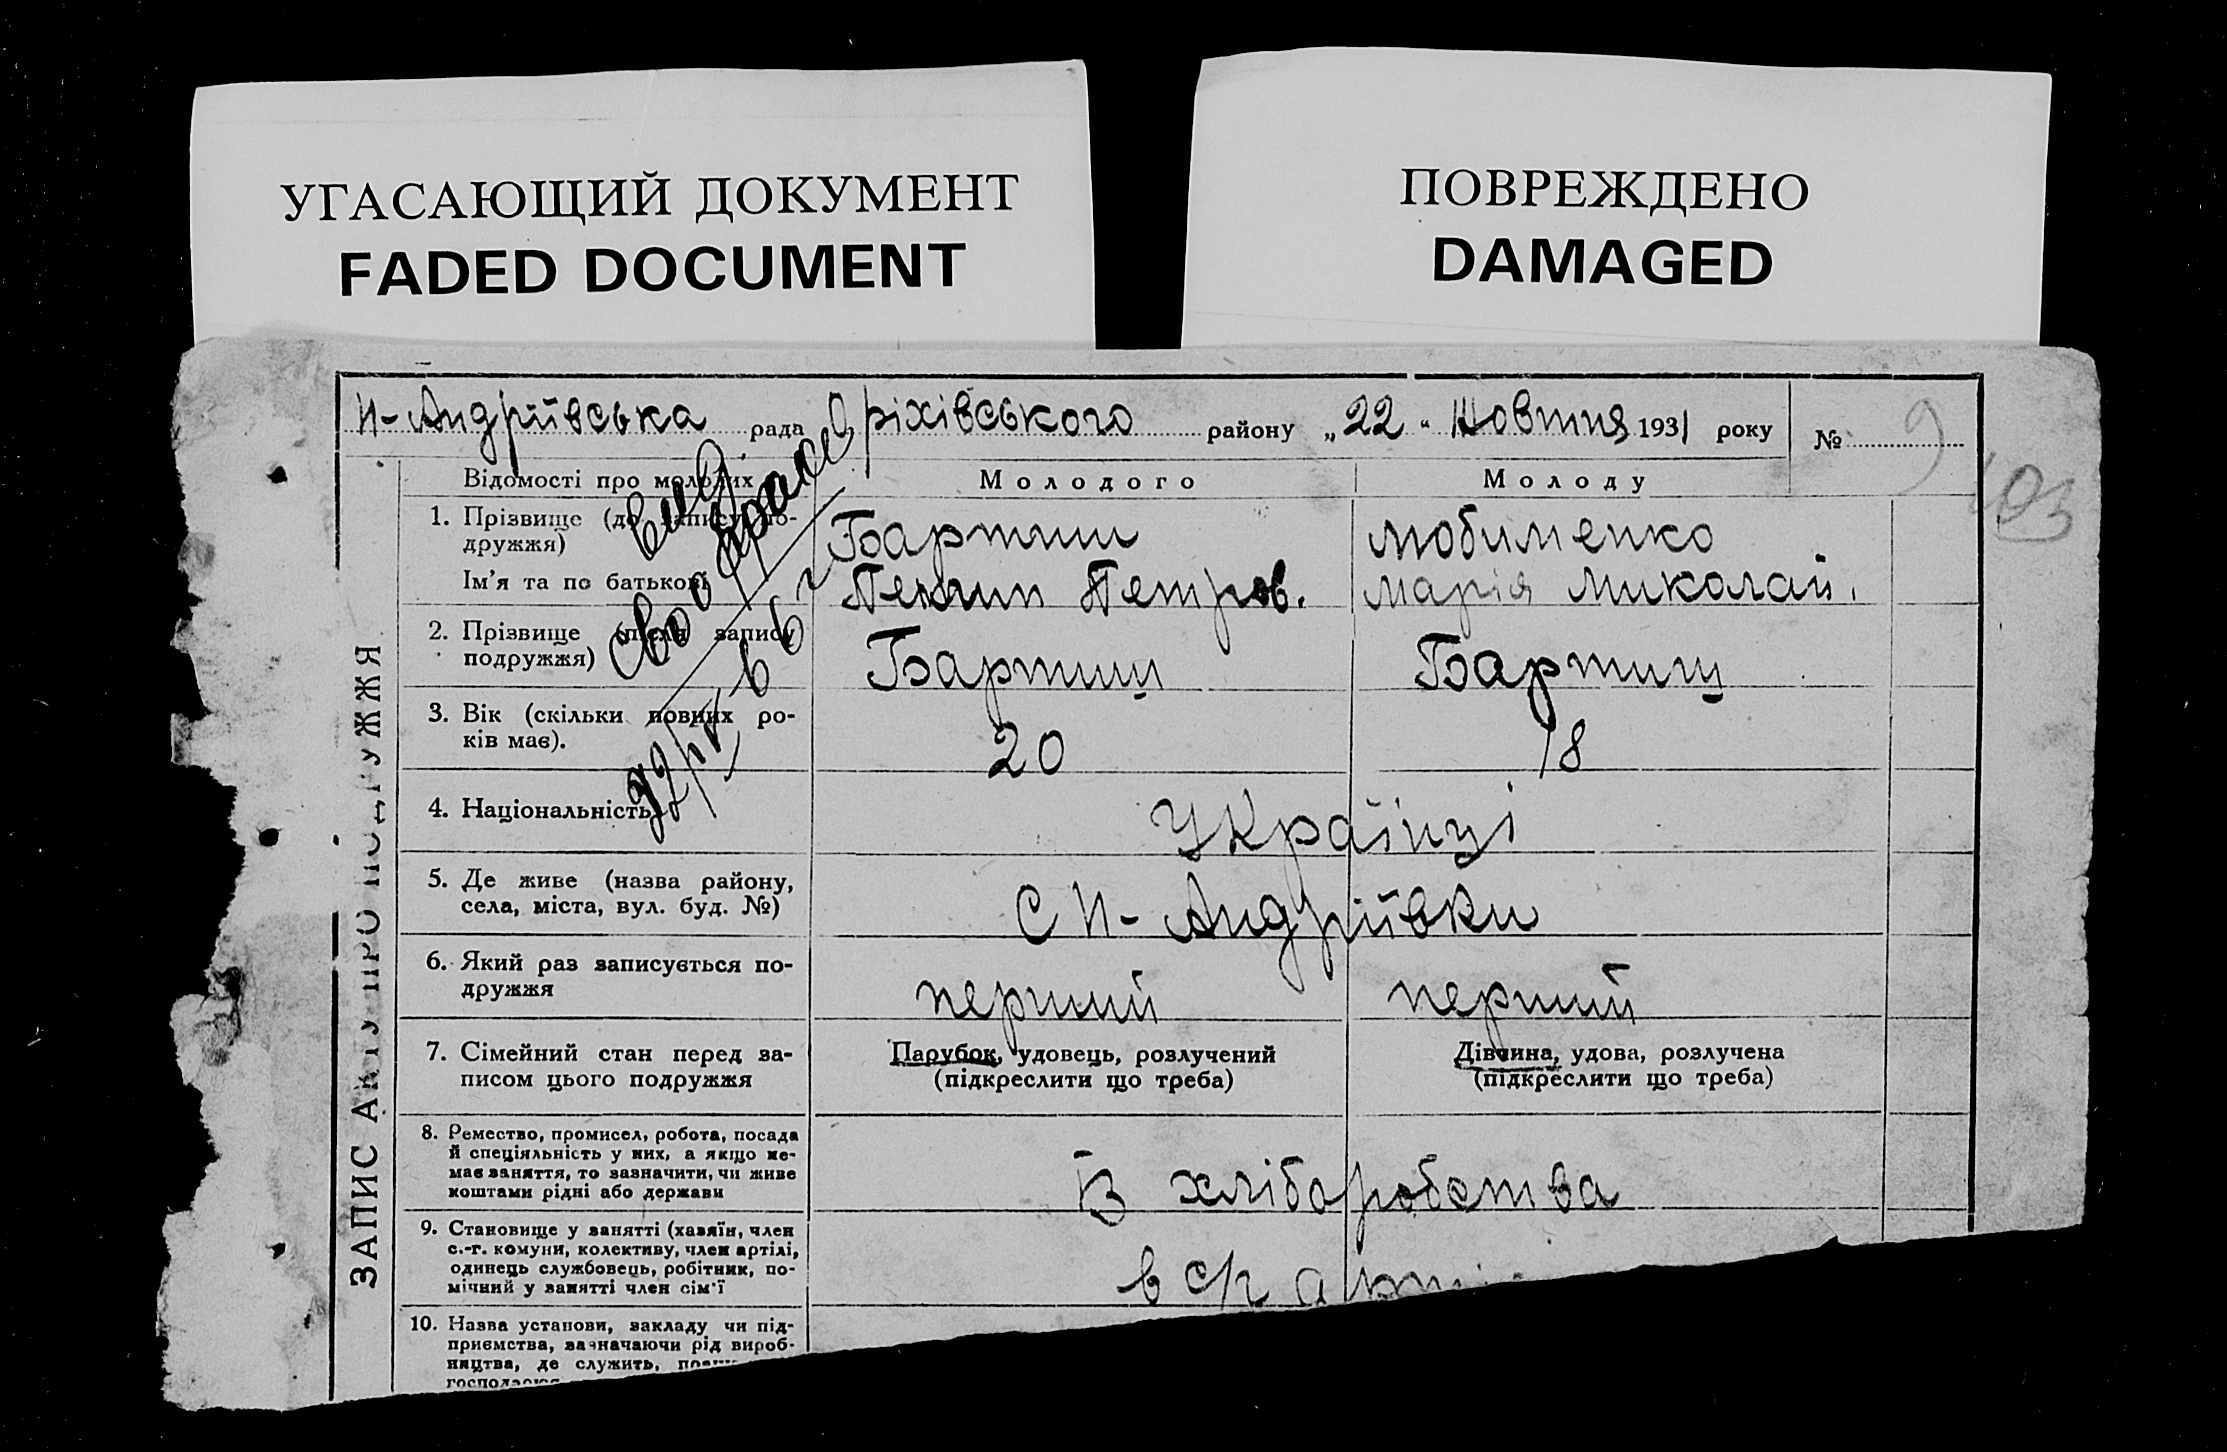 УГАСАЮЩИЙ ДОКУМЕНТ
FADED DOCUMENT
ПОВРЕЖДЕНО
DAMAGED
Н-Андріївська рада Оріхівського району „22“ Жовтня 1931 року № 9
103
Відомості про молодих Молодого Молоду
1. Прізвище (до запису подружжя) Бартиш Любименко
Ім'я та по батькові Петров. Марія Миколай.
2. Прізвище (після запису подружжя) Бартиш Бартиш
3. Вік (скільки повних років має). 20 18
4. Національність Українці
5. Де живе (назва району, села, міста, вул. буд. №) С Н-Андріївки
6. Який раз записується подружжя перший перший
7. Сімейний стан перед записом цього подружжя Парубок, удовець, розлучений (підкреслити що треба) Дівчина, удова, розлучена (підкреслити що треба)
8. Ремество, промисел, робота, посада й спеціяльність у них, а якщо немає заняття, то зазначити, чи живе коштами рідні або держави З хліборобства
9. Становище у занятті (хазяїн, член с.-г. комуни, колективу, член артілі, одинець службовець, робітник, помічний у занятті член сім'ї в с/г
10. Назва установи, закладу чи підприємства, зазначаючи рід виробництва, де служить,
ЗАПИС АКТУ ПРО ПОДРУЖЖЯ
вид.
брак